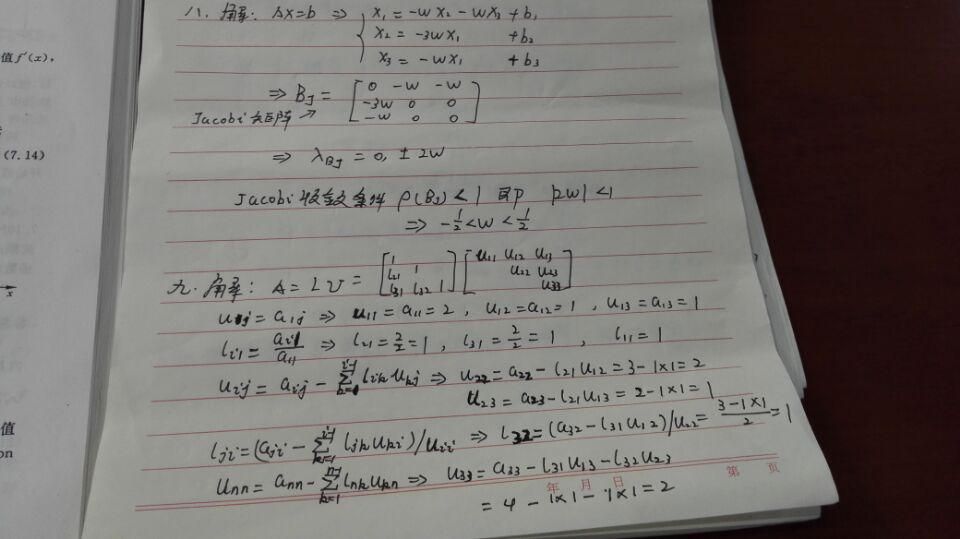 值 f'(x),
(7.14)
x
值
on
八. 解: Ax=b ⇒ { x₁ = -wx₂ - wx₃ + b₁
x₂ = -3wx₁ + b₂
x₃ = -wx₁ + b₃
⇒ B_J = [0 -w -w
-3w 0 0
-w 0 0]
Jacobi矩阵 ↗
⇒ λ_{B_J} = 0, ± 2w
Jacobi 收敛条件 ρ(B_J) < 1 即 |2w| < 1
⇒ -1/2 < w < 1/2
九. 解: A = LU = [1
l₂₁ 1
l₃₁ l₃₂ 1] [u₁₁ u₁₂ u₁₃
u₂₂ u₂₃
u₃₃]
u₁j = a₁j ⇒ u₁₁ = a₁₁ = 2, u₁₂ = a₁₂ = 1, u₁₃ = a₁₃ = 1
l_{i1} = a_{i1}/a₁₁ ⇒ l₂₁ = 2/2 = 1, l₃₁ = 2/2 = 1, l₁₁ = 1
u_{ij} = a_{ij} - Σ_{k=1}^{i-1} l_{ik} u_{kj} ⇒ u₂₂ = a₂₂ - l₂₁u₁₂ = 3 - 1×1 = 2
u₂₃ = a₂₃ - l₂₁u₁₃ = 2 - 1×1 = 1
l_{ji} = (a_{ji} - Σ_{k=1}^{i-1} l_{jk} u_{ki}) / u_{ii} ⇒ l₃₂ = (a₃₂ - l₃₁u₁₂)/u₂₂ = (3-1×1)/2 = 1
u_{nn} = a_{nn} - Σ_{k=1}^{n-1} l_{nk} u_{kn} ⇒ u₃₃ = a₃₃ - l₃₁u₁₃ - l₃₂u₂₃
= 4 - 1×1 - 1×1 = 2
年 月 日 第 页